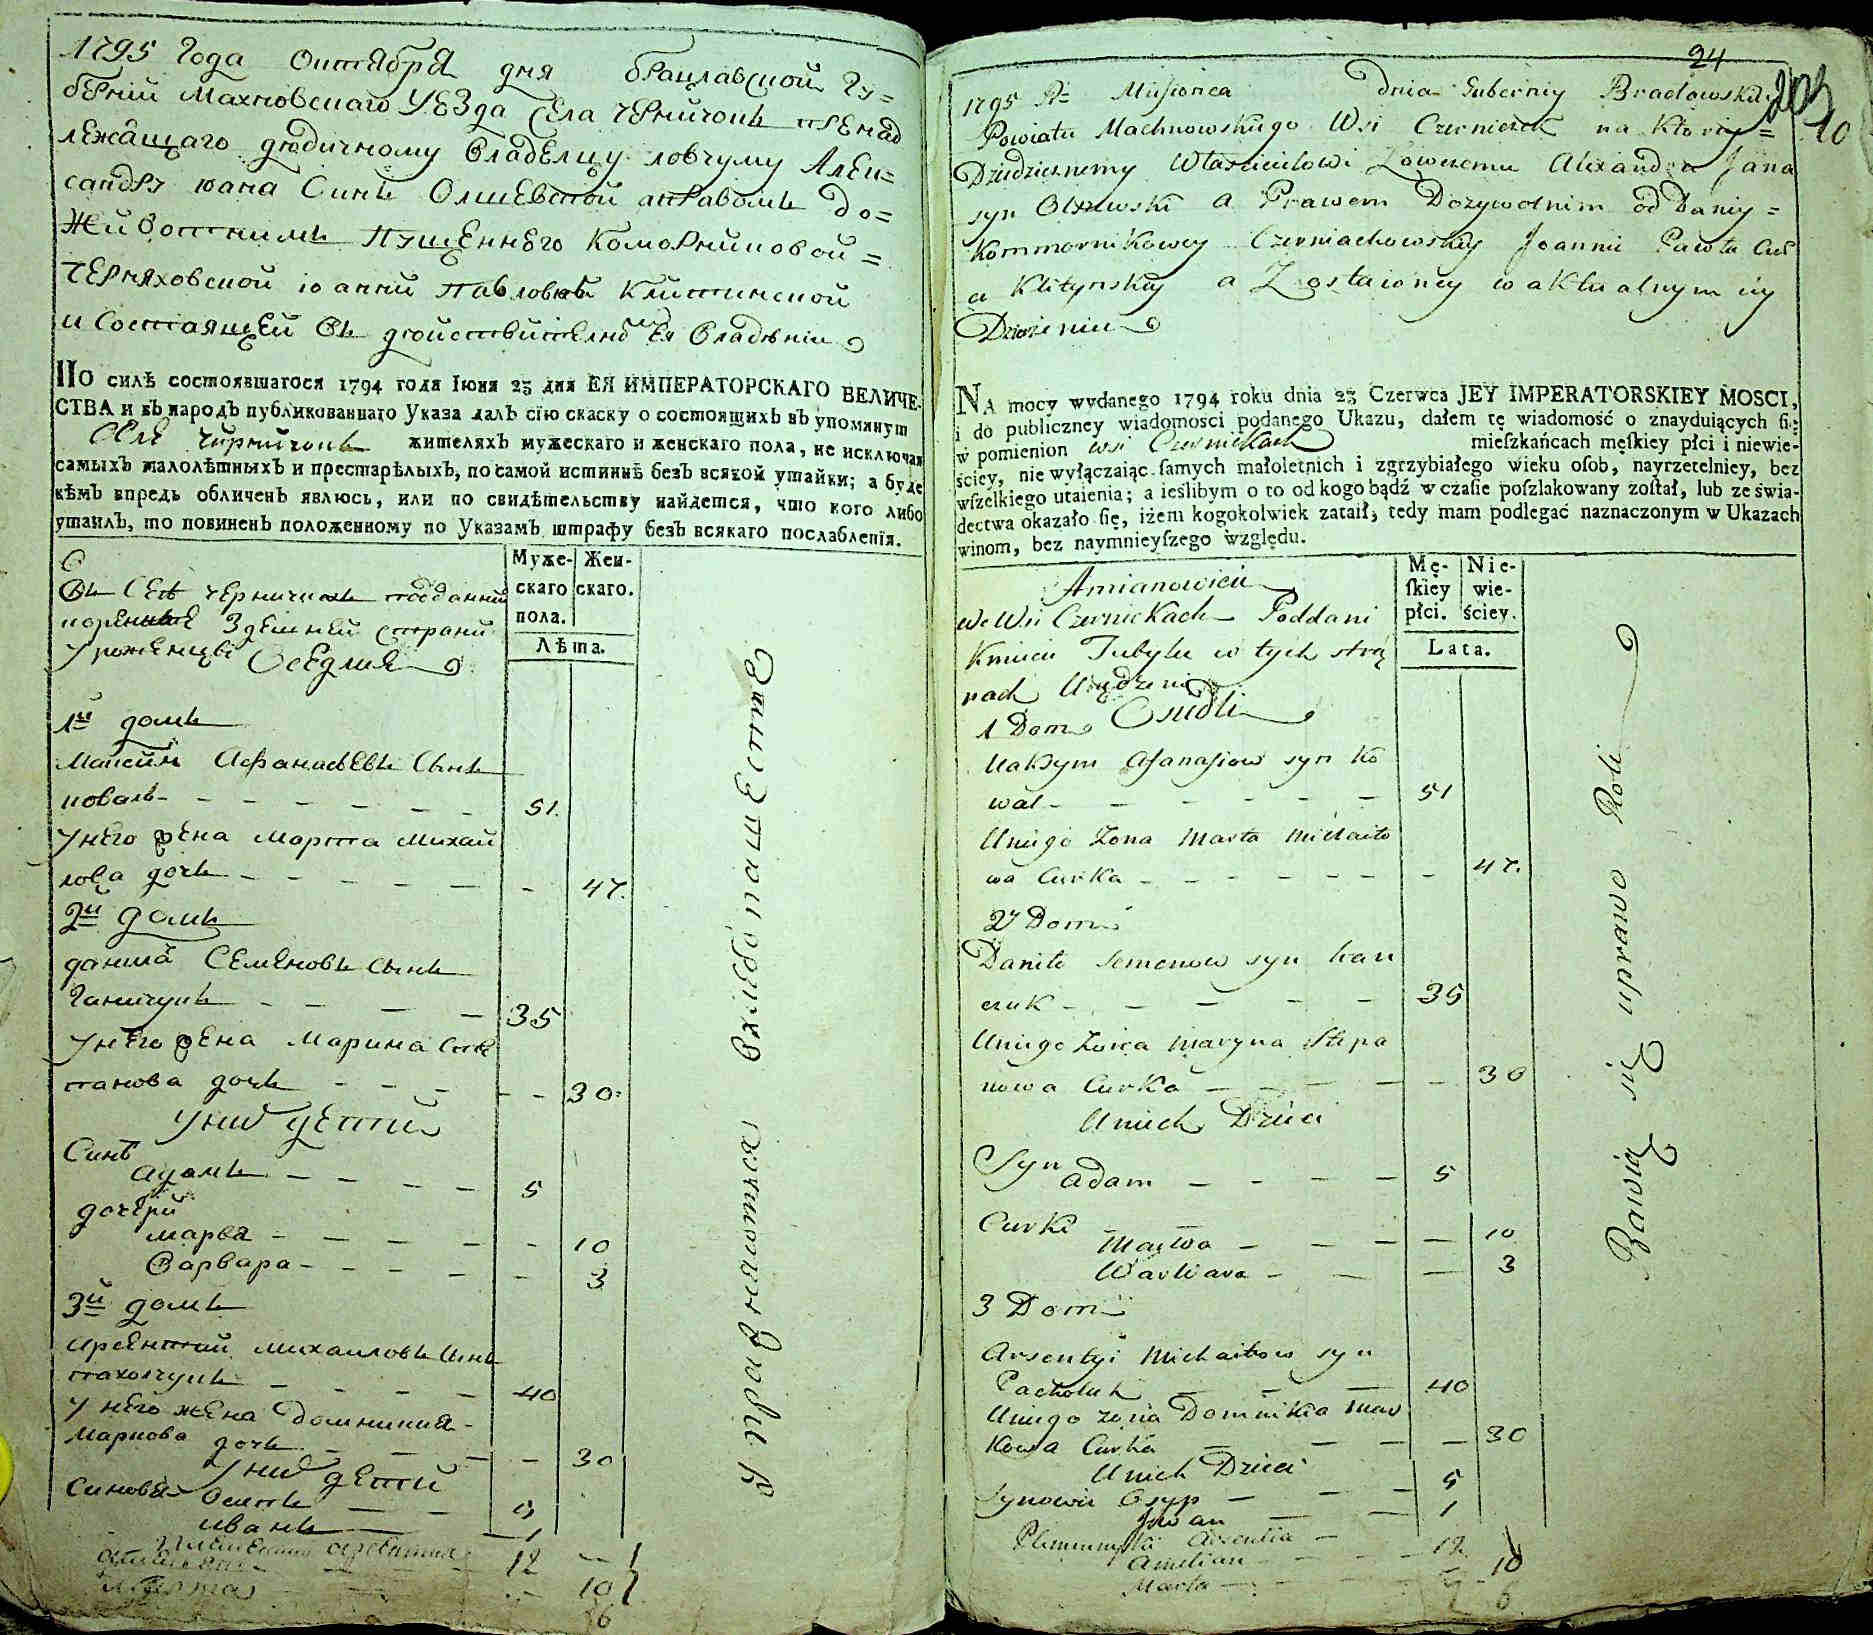 1795 Года Октября дня Брацлавской Гу=
бернiи Махновскаго Уезда Села Черничокъ пренад
лежащаго дедичному Владелцу ловчему Алек=
сандру Юана Синъ Олшевской аправомъ до=
Животнимъ пущеннего Коморниковой=
Черняховской iоанни павловни Клитинской
и Состоящей Въ действително Ея Владѣнiи
ПО силѣ состоявшагося 1794 года Iюня 23 дня ЕЯ ИМПЕРАТОРСКАГО ВЕЛИЧЕ-
СТВА и въ народъ публикованнаго Указа далъ сїю скаску о состоящихъ въ упомянут
Селе Чирничокъ жителяхъ мужескаго и женскаго пола, не исключая
самыхъ малолѣтныхъ и престарѣлыхъ, по самой истиннѣ безъ всякой утайки; а буде
кѣмъ впредь обличенъ явлюсь, или по свидѣтельству найдется, что кого либо
утаилъ, то повиненъ положенному по Указамъ штрафу безъ всякаго послабленїя.
Муже-скаго пола. Жен-скаго.
Лѣта.
Въ Селѣ Черничкахъ подданий
коренние Здешней страни
Уроженци Оседлие
1й домъ
Максимъ Афанасьевъ Синъ
коваль - - - - - - - 51.
У него жена Марта Михай
лова дочь - - - - - - - 47.
2й домъ
данила Семеновъ Синъ
Ганчукъ - - - - 35
У него жена Марина Сте
панова дочь - - - - - 30.
У них дети
Синъ
адамъ - - - - 5
дочери
марва - - - - - - 10
Варвара - - - - - - 3
3й домъ
Арсентий михаиловъ Синъ
пахолчукъ - - - - - 40
У него жена Доминикия
Маркова дочь - - - - 30
У них дети
Синовя Осипъ - - 5
иванъ - - 1
12
10
6
Упражняются Вхлебопашестве
24
203
10
1795 Rᵘ Miesionca dnia Guberniy Bracławskiey
Powiatu Machnowskiego Wsi Czerniczek na ktorey=
Dziedzicznemy Włascicielowi Łowczemu Alixandru Jana
syn Olszewski a Prawem Dozywotnim od Daniy=
Kommornikowey Czerniachowskiey Joannie Pawła Cur
a Klitynskiey a Zostaioncey w aktualnym iey
Dzierżeniu
NA mocy wydanego 1794 roku dnia 23 Czerwca JEY IMPERATORSKIEY MOSCI,
i do publiczney wiadomosci podanego Ukazu, dałem tę wiadomość o znayduiących ſię
w pomienion wsi Czernickach mieſzkańcach męſkiey płci i niewie-
ściey, nie wyłączaiąc ſamych małoletnich i zgrzybiałego wieku oſob, nayrzetelniey, bez
wſzelkiego utaienia; a ieślibym o to od kogo bądź w czaſie poſzlakowany zoſtał, lub ze świa-
dectwa okazało ſię, iżem kogokolwiek zataił, tedy mam podlegać naznaczonym w Ukazach
winom, bez naymnieyſzego względu.
Mę-ſkiey płci. Nie-wie-ściey.
Lata.
Amianowicie
we Wsi Czernickach Poddani
Kmieci Tubylcy w tych stro
nach Urodzeni
Osiedli
1 Dom
Maksym Afanasiow syn Ko
wal - - - - - - 51
U niego Zona Marta Michaiło
wa Curka - - - - - - - 47.
2y Dom
Daniło Semenow syn han
czuk - - - - - 35
U niego Zona Maryna Stepa
nowa Curka - - - - - 30
U nich Dzieci
Syn
Adam - - - - 5
Curki
Marwa - - - - 10
Warwara - - - 3
3 Dom
Arsentyi Michaiłow syn
Pachołuk - - - 40
U niego zona Dominika Mar
kowa Curka - - - - 30
U nich Dzieci
Synowie Osyp - - - 5
Jwan - - 1
Plemiennyki Arsentia -
Amilian - - - - 12
Marta - - - - 10
6
Bawią się uprawo Roli